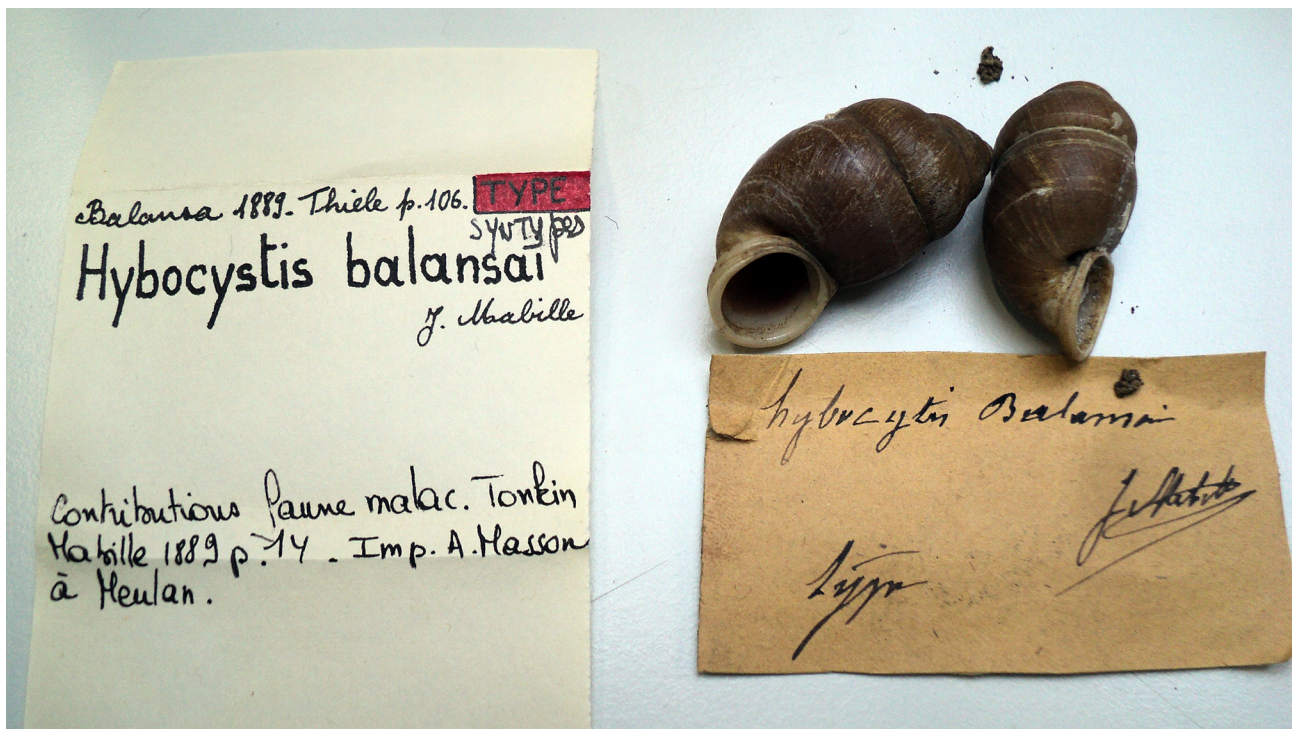 Balansa 1889. Thiele p. 106. TYPE
SYNTypes
Hybocystis balansai
J. Mabille
Contributions faune malac. Tonkin
Mabille 1889 p. 14 . Imp. A. Masson
à Meulan .
hybocystis Balansai
J. Mabille
type